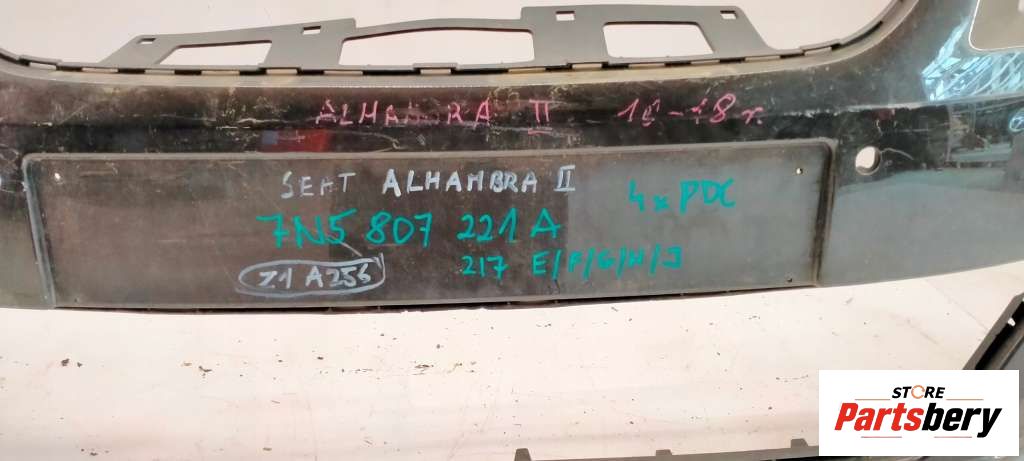 ALHAMBRA II 10-18 r.
SEAT ALHAMBRA II
4x PDC
7N5 807 221 A
217 E/F/G/H/J
Z1 A256
STORE
Partsbery